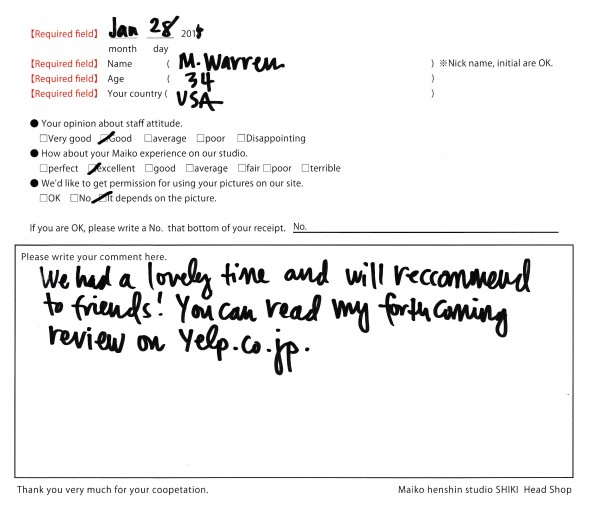 【Required field】 Jan 28 2015
month day
【Required field】 Name ( M. Warren ) ※Nick name, initial are OK.
【Required field】 Age ( 34 )
【Required field】 Your country ( USA )
● Your opinion about staff attitude.
□Very good □Good □average □poor □Disappointing
● How about your Maiko experience on our studio.
□perfect □excellent □good □average □fair □poor □terrible
● We'd like to get permission for using your pictures on our site.
□OK □No □It depends on the picture.
If you are OK, please write a No. that bottom of your receipt. No.
Please write your comment here.
We had a lovely time and will reccommend
to friends! You can read my forthcoming
review on Yelp.co.jp.
Thank you very much for your coopetation. Maiko henshin studio SHIKI Head Shop